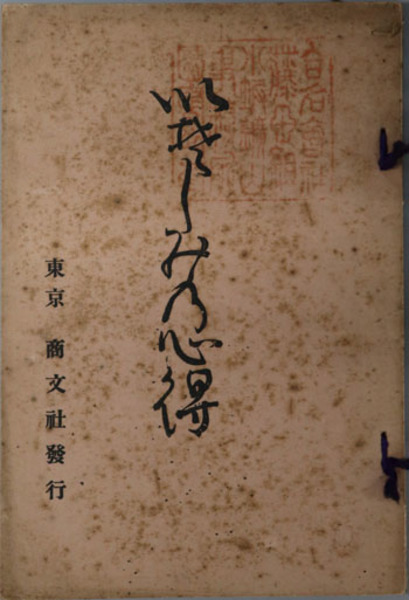 いそしみの心得
東京 商文社發行